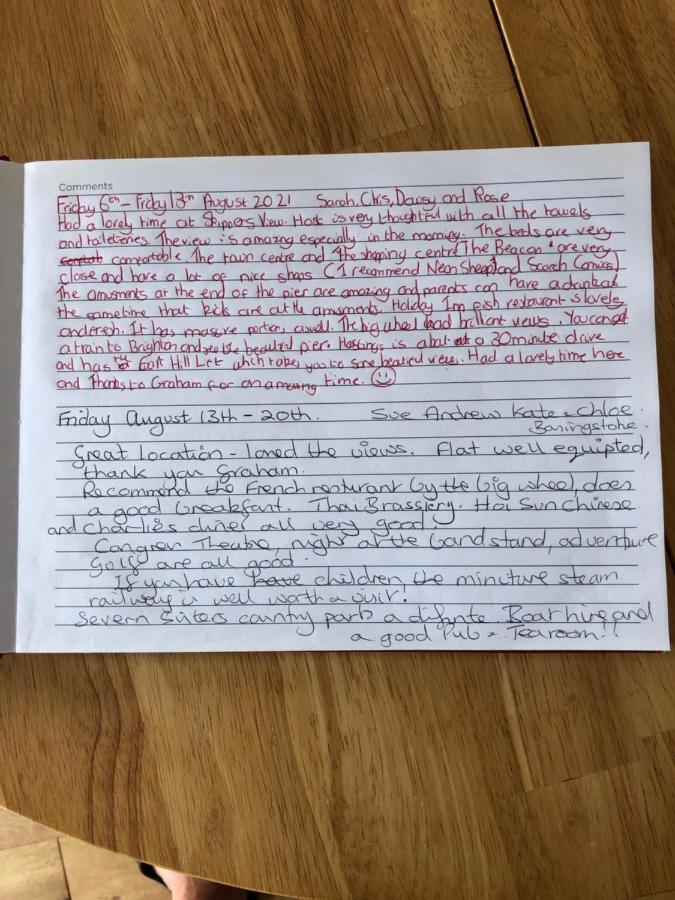 Comments
Friday 6th - Friday 13th August 2021 Sarah, Chris, Daisy and Rose
Had a lovely time at Skippers View. Host is very thoughtful with all the towels
and toiletries. The view is amazing especially in the morning. The beds are very
comfortable. The town centre and the shopping centre (The Beacon) are very
close and have a lot of nice shops (I recommend Neon Sheep and Search Comics)
The amusments at the end of the pier are amazing and parents can have a drink at
the sametime that kids are at the amusments. Holiday Inn fish restaurant is lovely
and fresh. It has massive portion, aswell. The big wheel had brillant views. You can get
a train to Brighton and see the beautiful pier. Hastings is about a 30 minute drive
and has East Hill Lift which takes you to some beautiful views. Had a lovely time here
and Thanks to Graham for an amazing time.
Friday August 13th - 20th. Sue Andrew Kate & Chloe.
Basingstoke.
Great location - loved the views. Flat well equipted,
thank you Graham.
Recommend the French resturant by the big wheel, does
a good breakfast. Thai Brassiery. Hoi Sun chinese
and Charlies diner all very good
Congress Theatre, night at the bandstand, adventure
Golf are all good.
If you have have children the minature steam
railway is well worth a visit!
Severn Sisters country park a definte. Boat hire and
a good Pub & Tearoom!!